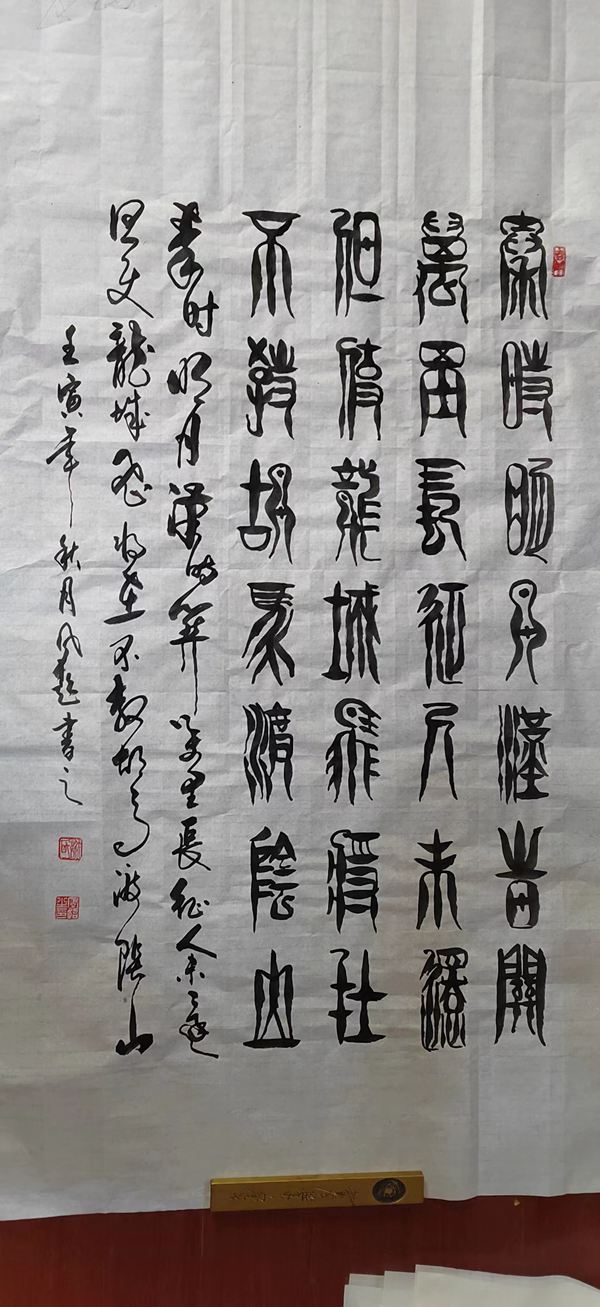 秦時明月漢旹關
萬里長征人未還
但使龍城飛將在
不教胡馬渡陰山
秦时明月漢时关万里長征人未還
但使龍城飞将在不教胡马渡陰山
壬寅年秋月書之